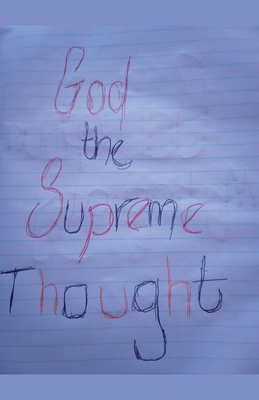 God
the
Supreme
Thought